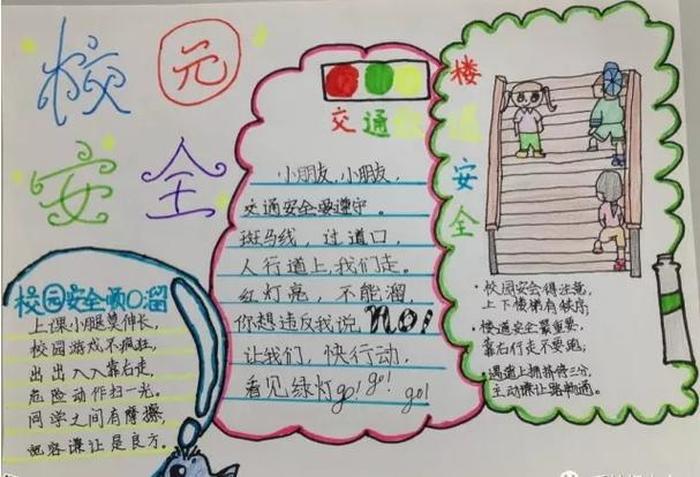 校元
安全
校园安全顺口溜
上课小腿莫伸长,
校园游戏不疯狂,
出出入入靠右走,
危险动作扫一光。
同学之间有摩擦,
宽容谦让是良方。
交通
小朋友,小朋友,
交通安全要遵守。
斑马线,过道口,
人行道上,我们走。
红灯亮,不能溜,
你想违反我说 no!
让我们,快行动,
看见绿灯go! go! go!
楼道安全
·校园安会得注意,
上下楼梯有秩序;
·楼道安全最重要,
靠右行走不要跑;
·遇道上拥挤停三分,
主动谦让路畅通。